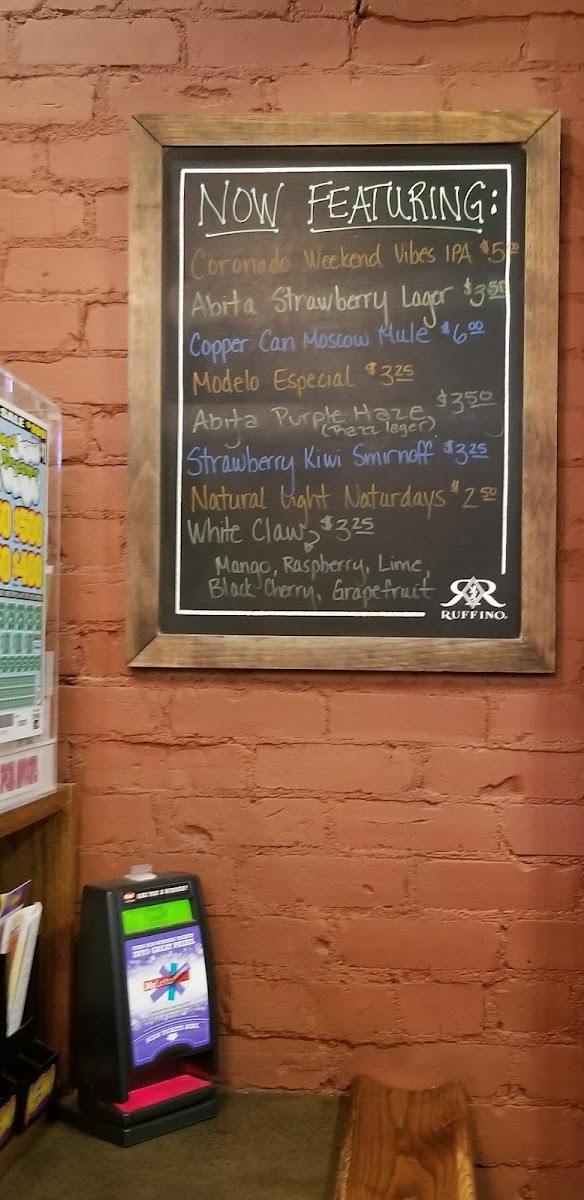 NOW FEATURING:
Coronado Weekend Vibes IPA $5.00
Abita Strawberry Lager $3.50
Copper Can Moscow Mule $6.00
Modelo Especial $3.25
Abita Purple Haze $3.50
(razz lager)
Strawberry Kiwi Smirnoff $3.25
Natural Light Naturdays $2.50
White Claw $3.25
Mango, Raspberry, Lime,
Black Cherry, Grapefruit
RUFFINO
ARE YOU A WINNER?
INTO GREAT PRIZES
MyLotto
SCAN TICKETS HERE